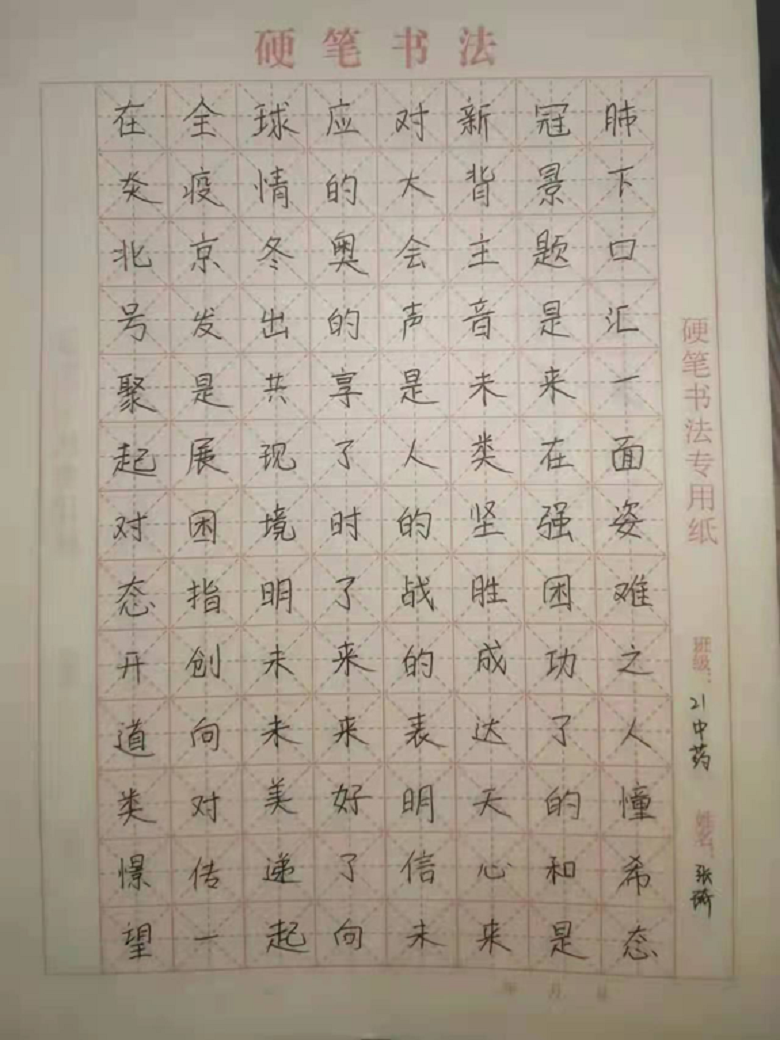 硬笔书法
在全球应对新冠肺
炎疫情的大背景下
北京冬奥会主题口
号发出的声音是汇
聚是共享是未来一
起展现了人类在面
对困境时的坚强姿
态指明了战胜困难
开创未来的成功之
道向未来表达了人
类对美好明天的憧
憬传递了信心和希
望一起向未来是态
硬笔书法专用纸
班级:
21中药
姓名:
年 月 日